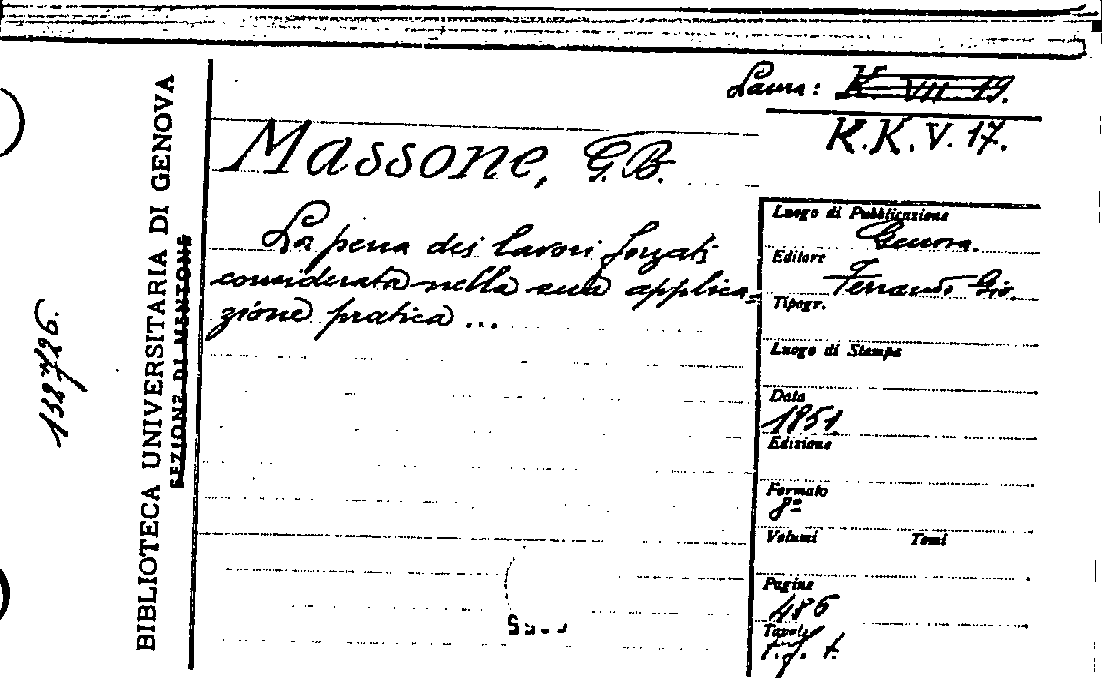 Laura: K. VII. 19.
K.K.V. 17.
Massone, G.B.
La pena dei lavori forzati
considerata nella sua applica=
zione pratica ...
138726.
BIBLIOTECA UNIVERSITARIA DI GENOVA
SEZIONE DI MENTONE
Luogo di Pubblicazione
Genova.
Editore
Ferrando Gio.
Tipogr.
Luogo di Stampa
Data
1851
Edizione
Formato
8º
Volumi Tomi
Pagine
486
Tavole